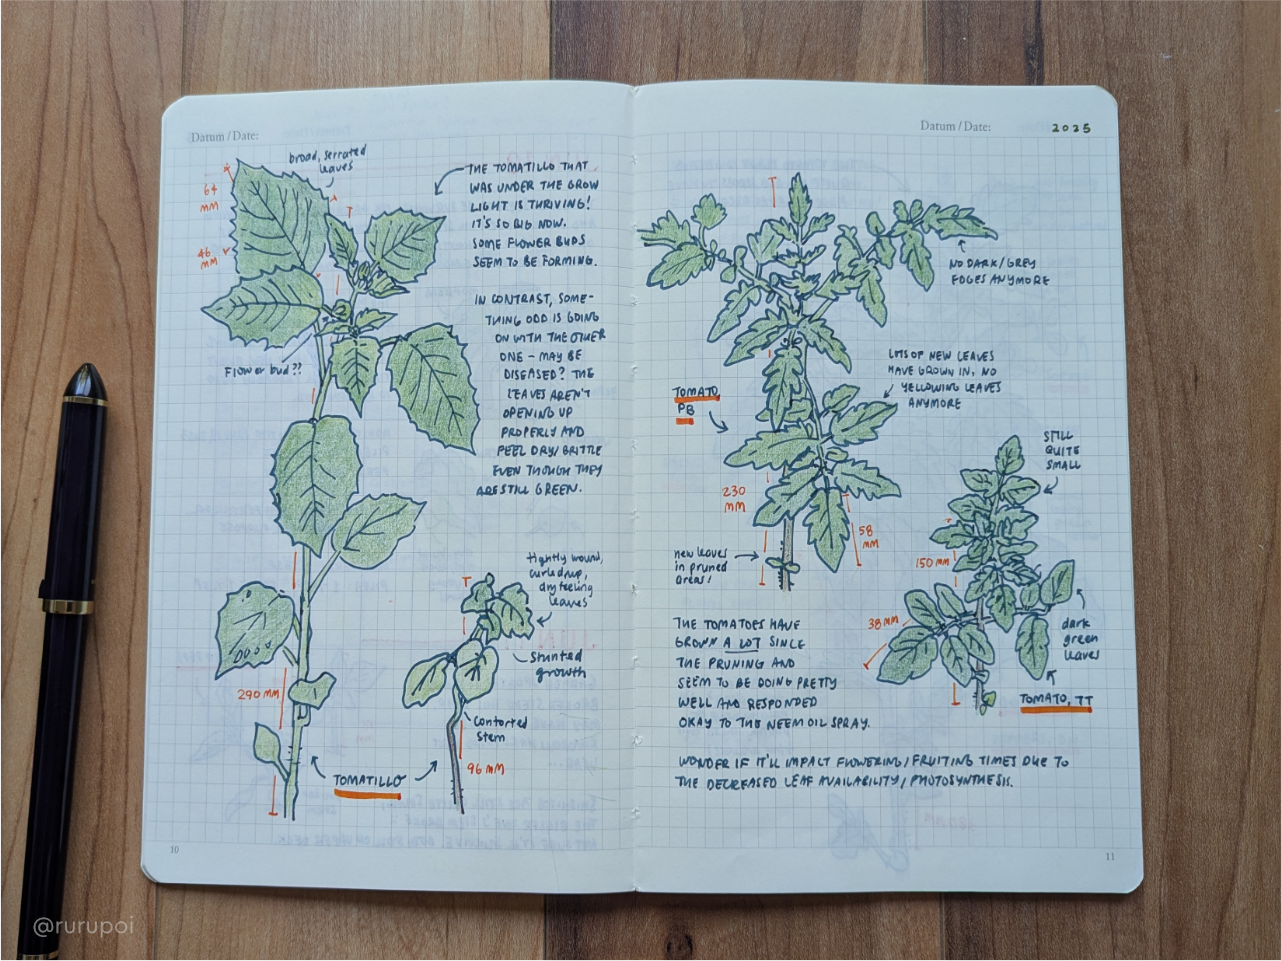 Datum / Date:
64
MM
46
MM
broad, serrated
leaves
THE TOMATILLO THAT
WAS UNDER THE GROW
LIGHT IS THRIVING!
IT'S SO BIG NOW.
SOME FLOWER BUDS
SEEM TO BE FORMING.
IN CONTRAST, SOME-
THING ODD IS GOING
ON WITH THE OTHER
ONE - MAY BE
DISEASED? THE
LEAVES AREN'T
OPENING UP
PROPERLY AND
FEEL DRY/BRITTLE
EVEN THOUGH THEY
ARE STILL GREEN.
Flower bud??
tightly wound,
curled up,
dry feeling
leaves
Stunted
growth
Contorted
Stem
290 MM
96 MM
TOMATILLO
10
Datum / Date:
2025
NO DARK/GREY
EDGES ANYMORE
LOTS OF NEW LEAVES
HAVE GROWN IN, NO
YELLOWING LEAVES
ANYMORE
TOMATO,
PB
STILL
QUITE
SMALL
230
MM
58
MM
150 MM
new leaves
in pruned
areas!
38 MM
dark
green
leaves
TOMATO, TT
THE TOMATOES HAVE
GROWN A LOT SINCE
THE PRUNING AND
SEEM TO BE DOING PRETTY
WELL AND RESPONDED
OKAY TO THE NEEM OIL SPRAY.
WONDER IF IT'LL IMPACT FLOWERING/FRUITING TIMES DUE TO
THE DECREASED LEAF AVAILABILITY/PHOTOSYNTHESIS.
11
@rurupoi